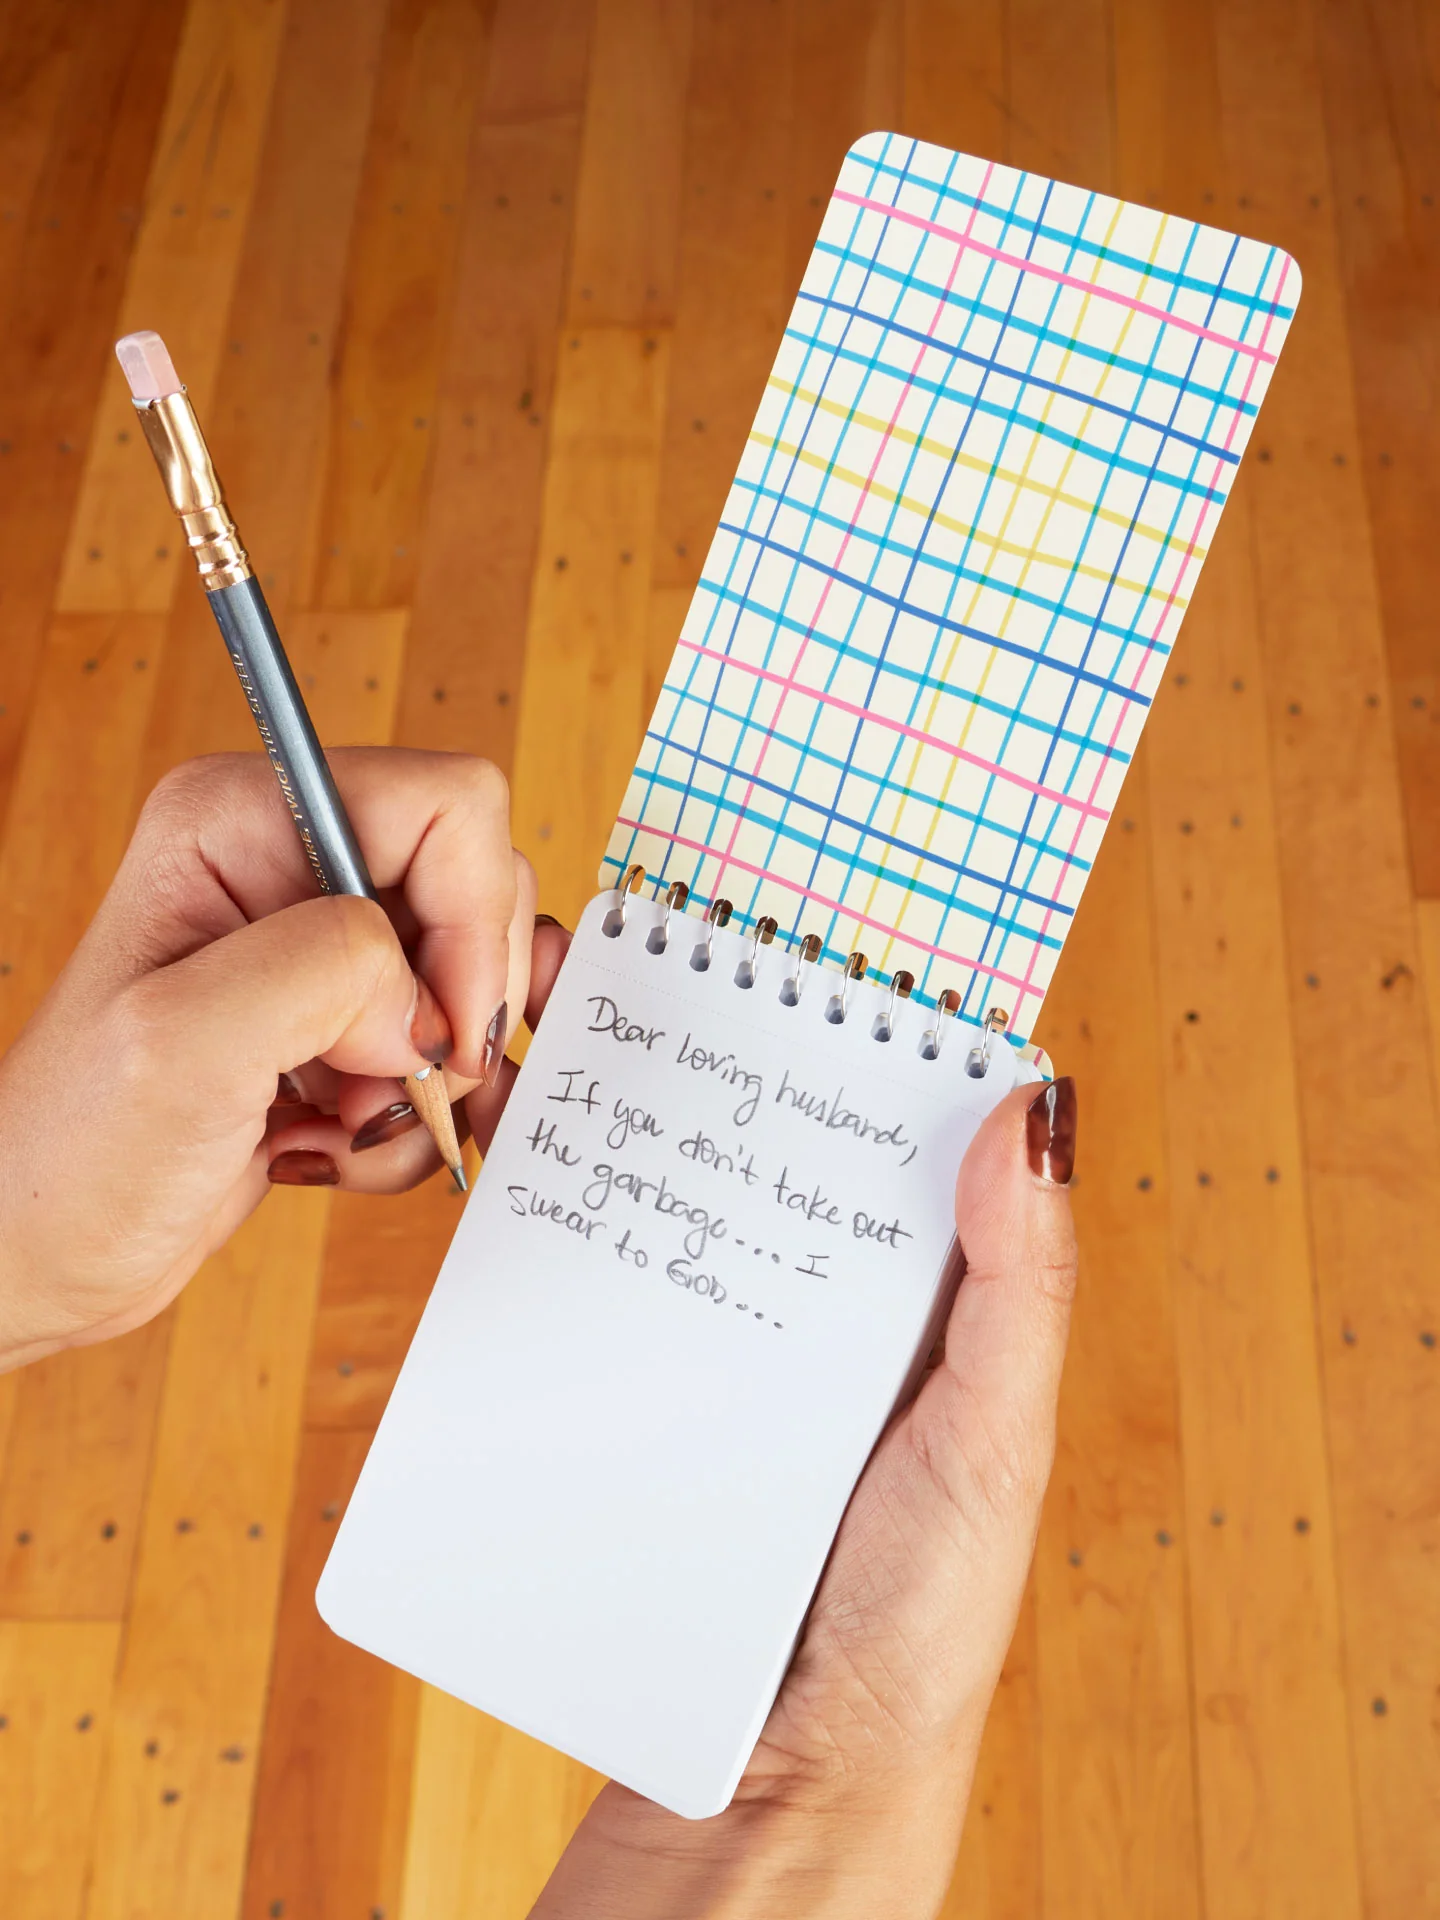 Dear loving husband,
If you don't take out
the garbage... I
swear to GOD...